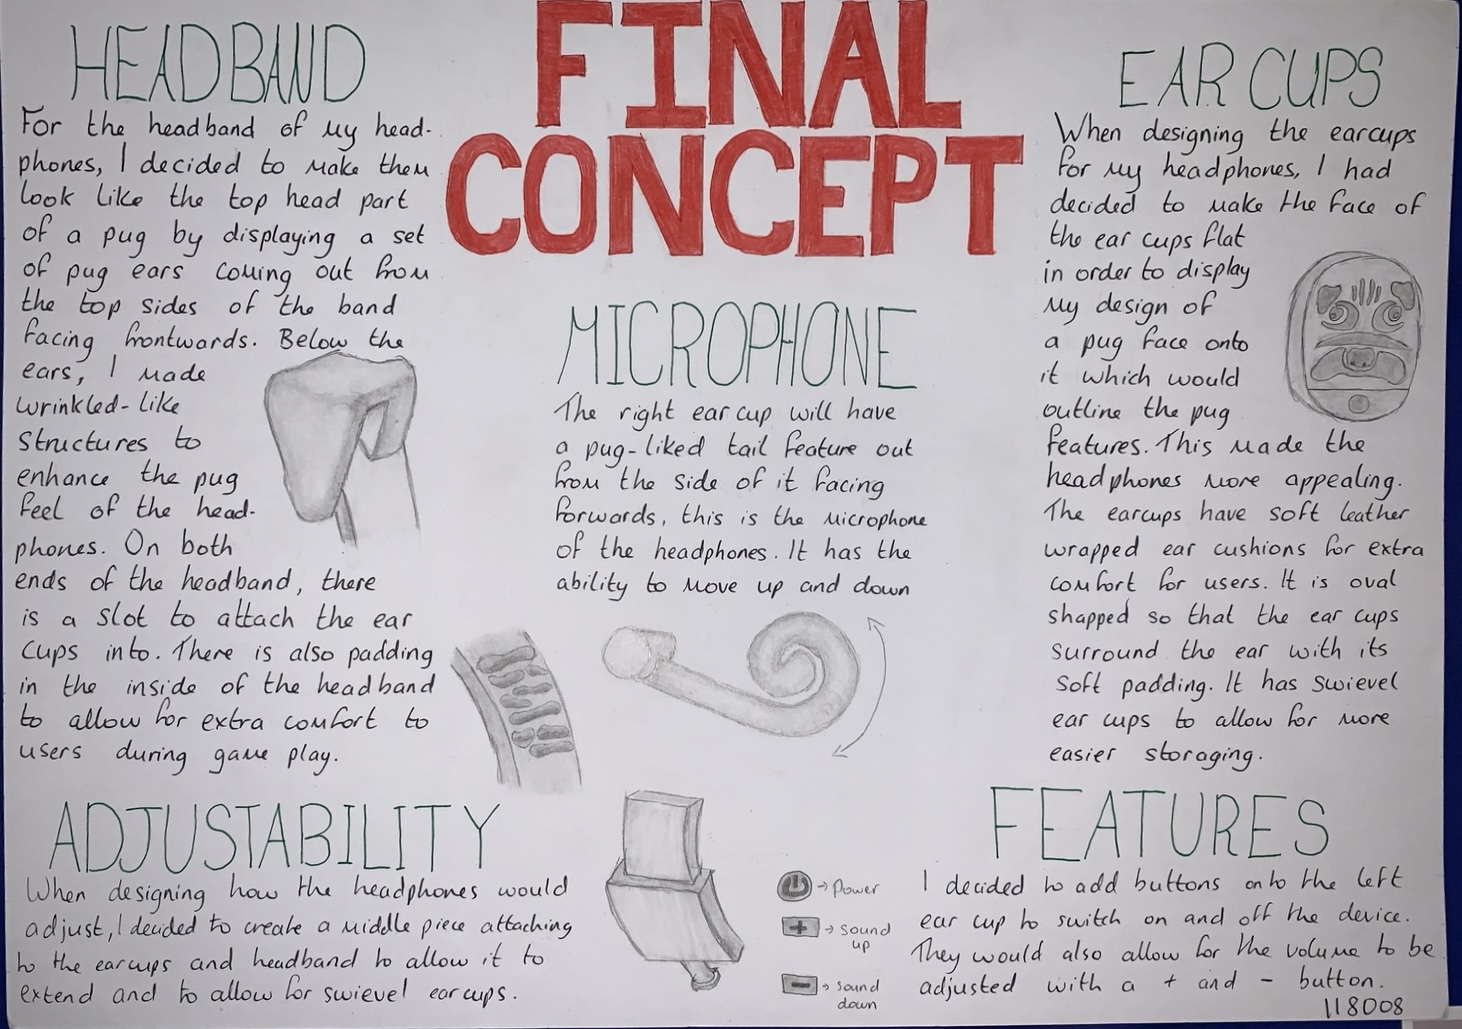 FINAL
CONCEPT
HEADBAND
For the headband of my head-
phones, I decided to make them
look like the top head part
of a pug by displaying a set
of pug ears coming out from
the top sides of the band
facing frontwards. Below the
ears, I made
wrinkled-like
structures to
enhance the pug
feel of the head-
phones. On both
ends of the headband, there
is a slot to attach the ear
cups into. There is also padding
in the inside of the headband
to allow for extra comfort to
users during game play.
MICROPHONE
The right ear cup will have
a pug-liked tail feature out
from the side of it facing
forwards, this is the microphone
of the headphones. It has the
ability to move up and down
EAR CUPS
When designing the earcups
for my headphones, I had
decided to make the face of
the ear cups flat
in order to display
my design of
a pug face onto
it which would
outline the pug
features. This made the
headphones more appealing.
The earcups have soft leather
wrapped ear cushions for extra
comfort for users. It is oval
shaped so that the ear cups
surround the ear with its
soft padding. It has swievel
ear cups to allow for more
easier storaging.
ADJUSTABILITY
When designing how the headphones would
adjust, I decided to create a middle piece attaching
to the earcups and headband to allow it to
extend and to allow for swievel earcups.
→ Power
+ → sound
up
- → sound
down
FEATURES
I decided to add buttons onto the left
ear cup to switch on and off the device.
They would also allow for the volume to be
adjusted with a + and - button.
118008